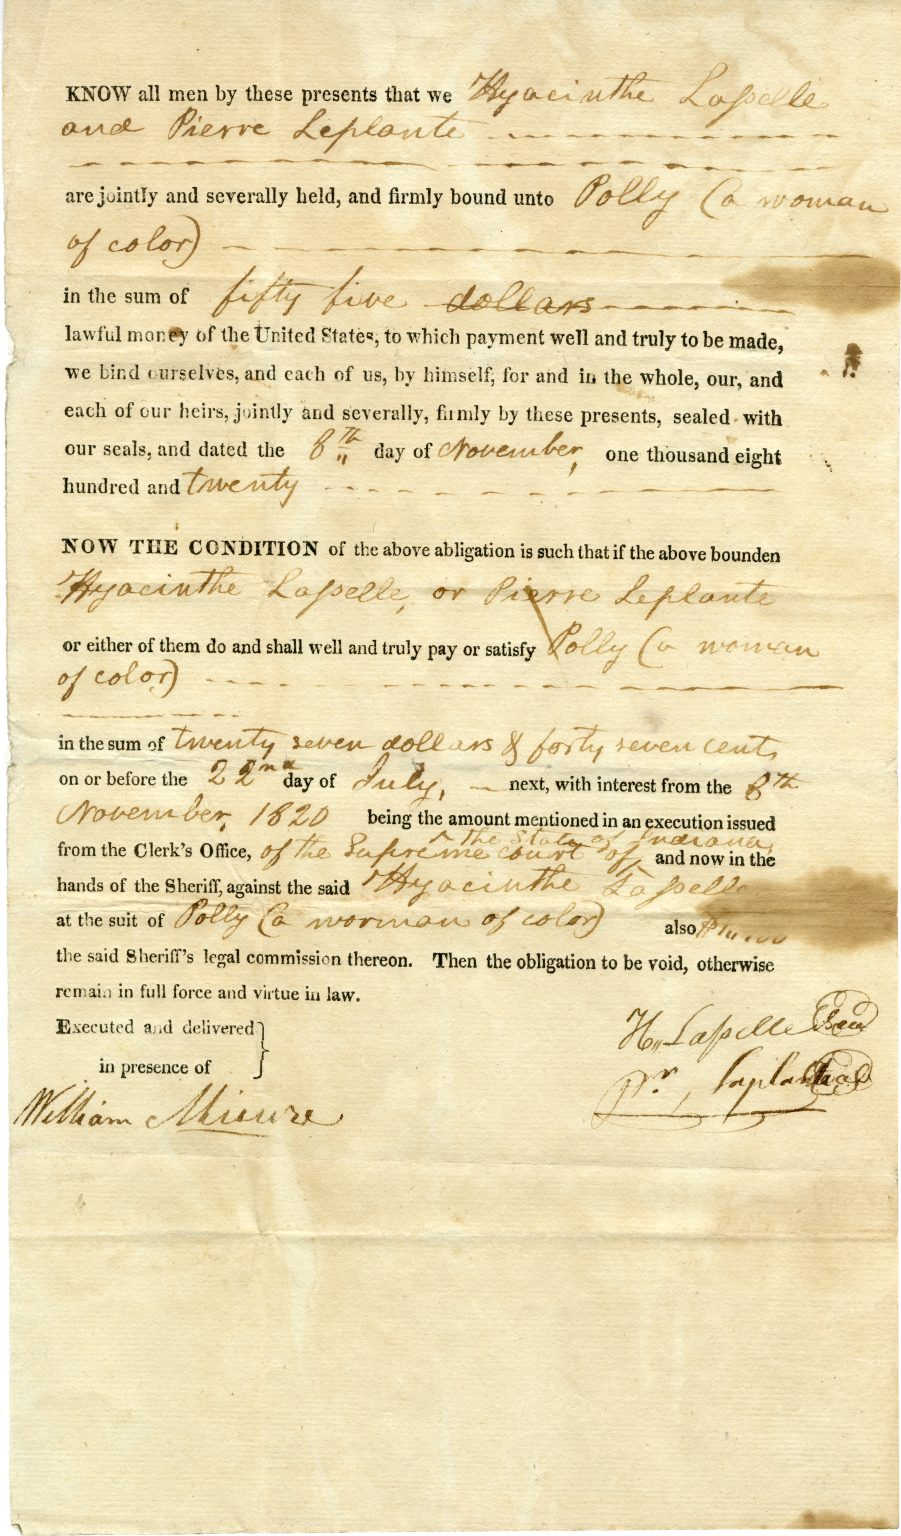 KNOW all men by these presents that we Hyacinthe Lasselle
and Pierre Leplante
are jointly and severally held, and firmly bound unto Polly (a woman
of color)
in the sum of fifty five dollars
lawful money of the United States, to which payment well and truly to be made,
we bind ourselves, and each of us, by himself, for and in the whole, our, and
each of our heirs, jointly and severally, firmly by these presents, sealed with
our seals, and dated the 8th day of November, one thousand eight
hundred and twenty
NOW THE CONDITION of the above abligation is such that if the above bounden
Hyacinthe Lasselle, or Pierre Leplante
or either of them do and shall well and truly pay or satisfy Polly (a woman
of color)
in the sum of twenty seven dollars & forty seven cents
on or before the 22nd day of July, next, with interest from the 8th
November, 1820 being the amount mentioned in an execution issued
the State of Indiana,
from the Clerk's Office, of the Supreme court of, and now in the
hands of the Sheriff, against the said Hyacinthe Lasselle
at the suit of Polly (a woman of color) also
the said Sheriff's legal commission thereon. Then the obligation to be void, otherwise
remain in full force and virtue in law.
Executed and delivered
in presence of
H. Lasselle Seal
Pr. Laplante Seal
William